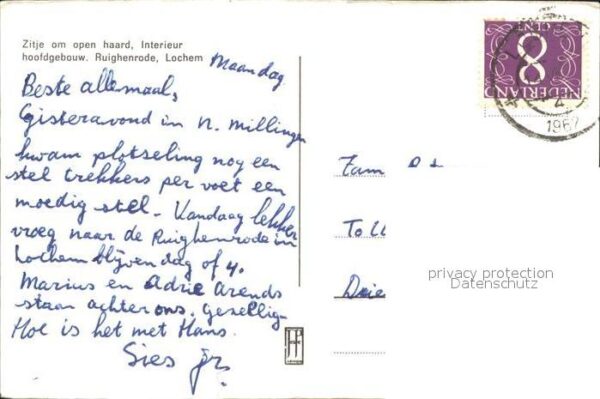 Zitje om open haard, Interieur
hoofdgebouw. Ruighenrode, Lochem
Maandag
Beste allemaal,
Gisteravond in N. Millingen
kwam plotseling nog een
stel trekkers per voet een
moedig stel. Vandaag lekker
vroeg naar de Ruighenrode in
Lochem blijven dag of 4.
Marius en Adrie Arends
staan achter ons. Gesellig-
Hoe is het met Hans.
Sies
8
CENT
NEDERLAND
4
1967
Fam
Toll
Drie
privacy protection
Datenschutz